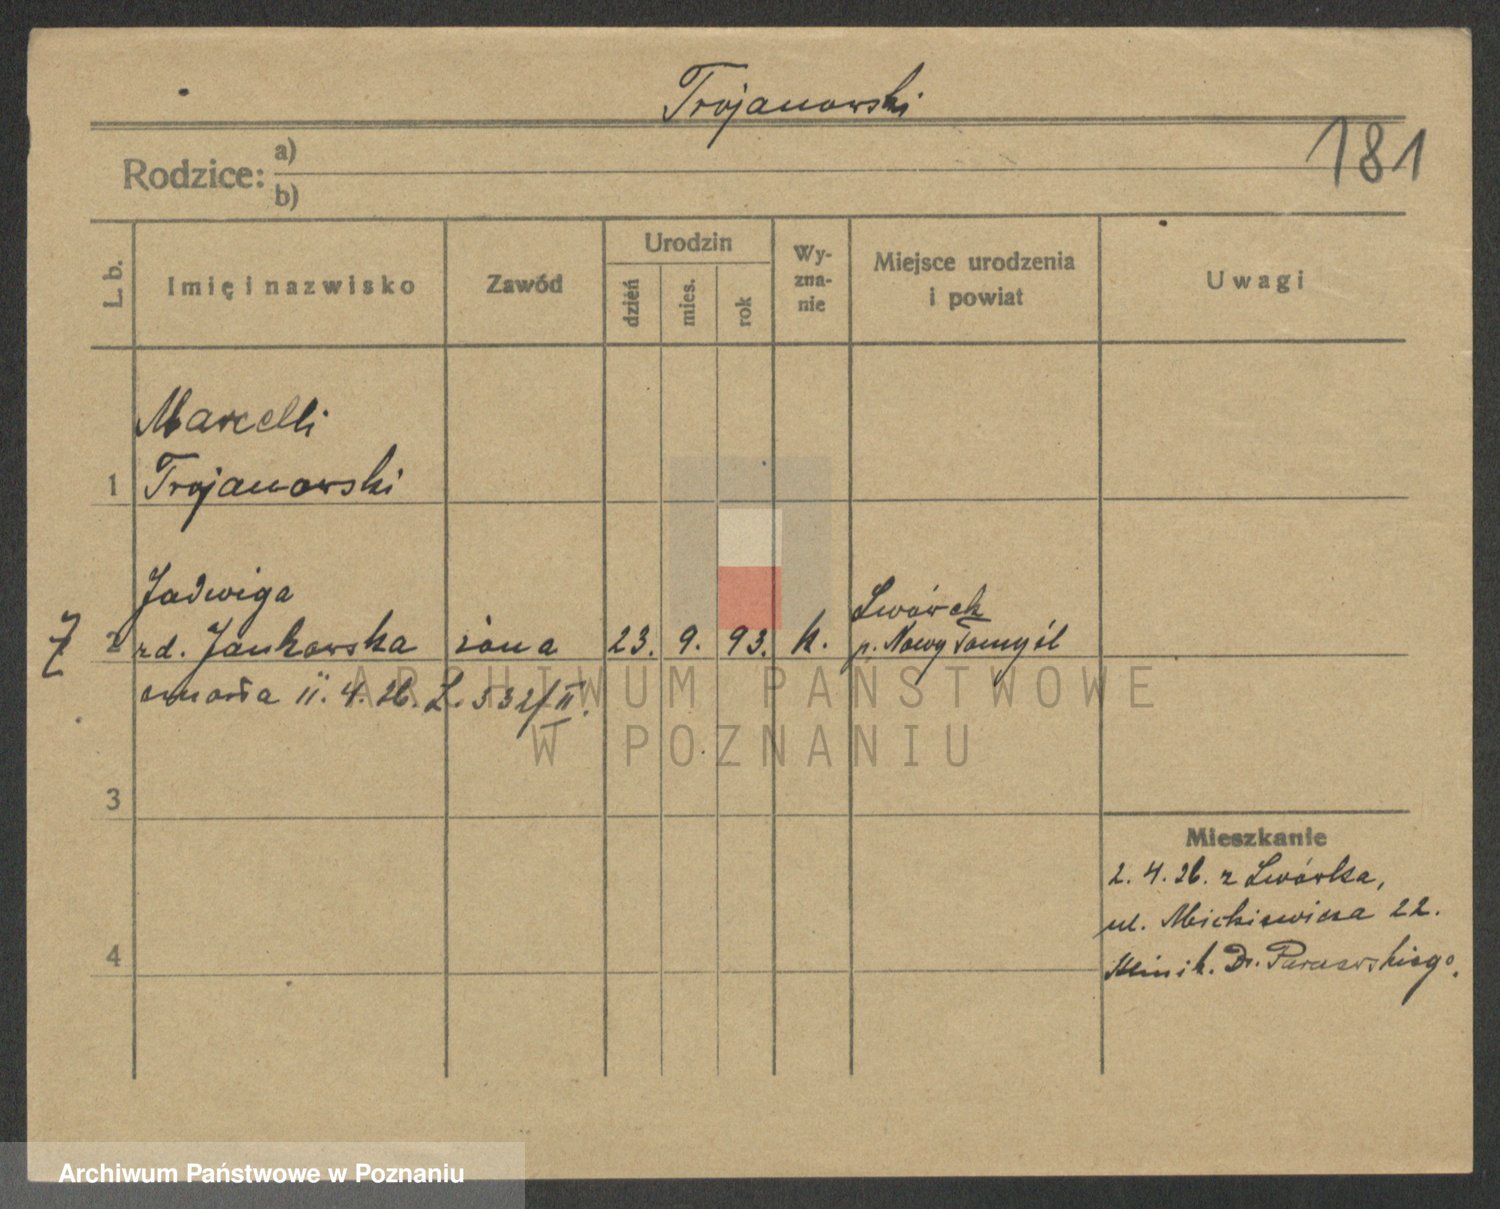 Trojanowski
181
Rodzice: a)
b)
L. b.
Imię i nazwisko
Zawód
Urodzin
dzień
mies.
rok
Wy-
zna-
nie
Miejsce urodzenia
i powiat
Uwagi
Marcelli
1 Trojanowski
Jadwiga
2 zd. Jankowska żona 23. 9. 93. k.
Lwówek
p. Nowy Tomyśl
zmarła 11. 4. 26. L. 532/II.
3
4
Mieszkanie
2. 4. 26. z Lwówka,
ul. Mickiewicza 22.
Klinik. Dr.
ARCHIWUM PAŃSTWOWE
W POZNANIU
Archiwum Państwowe w Poznaniu